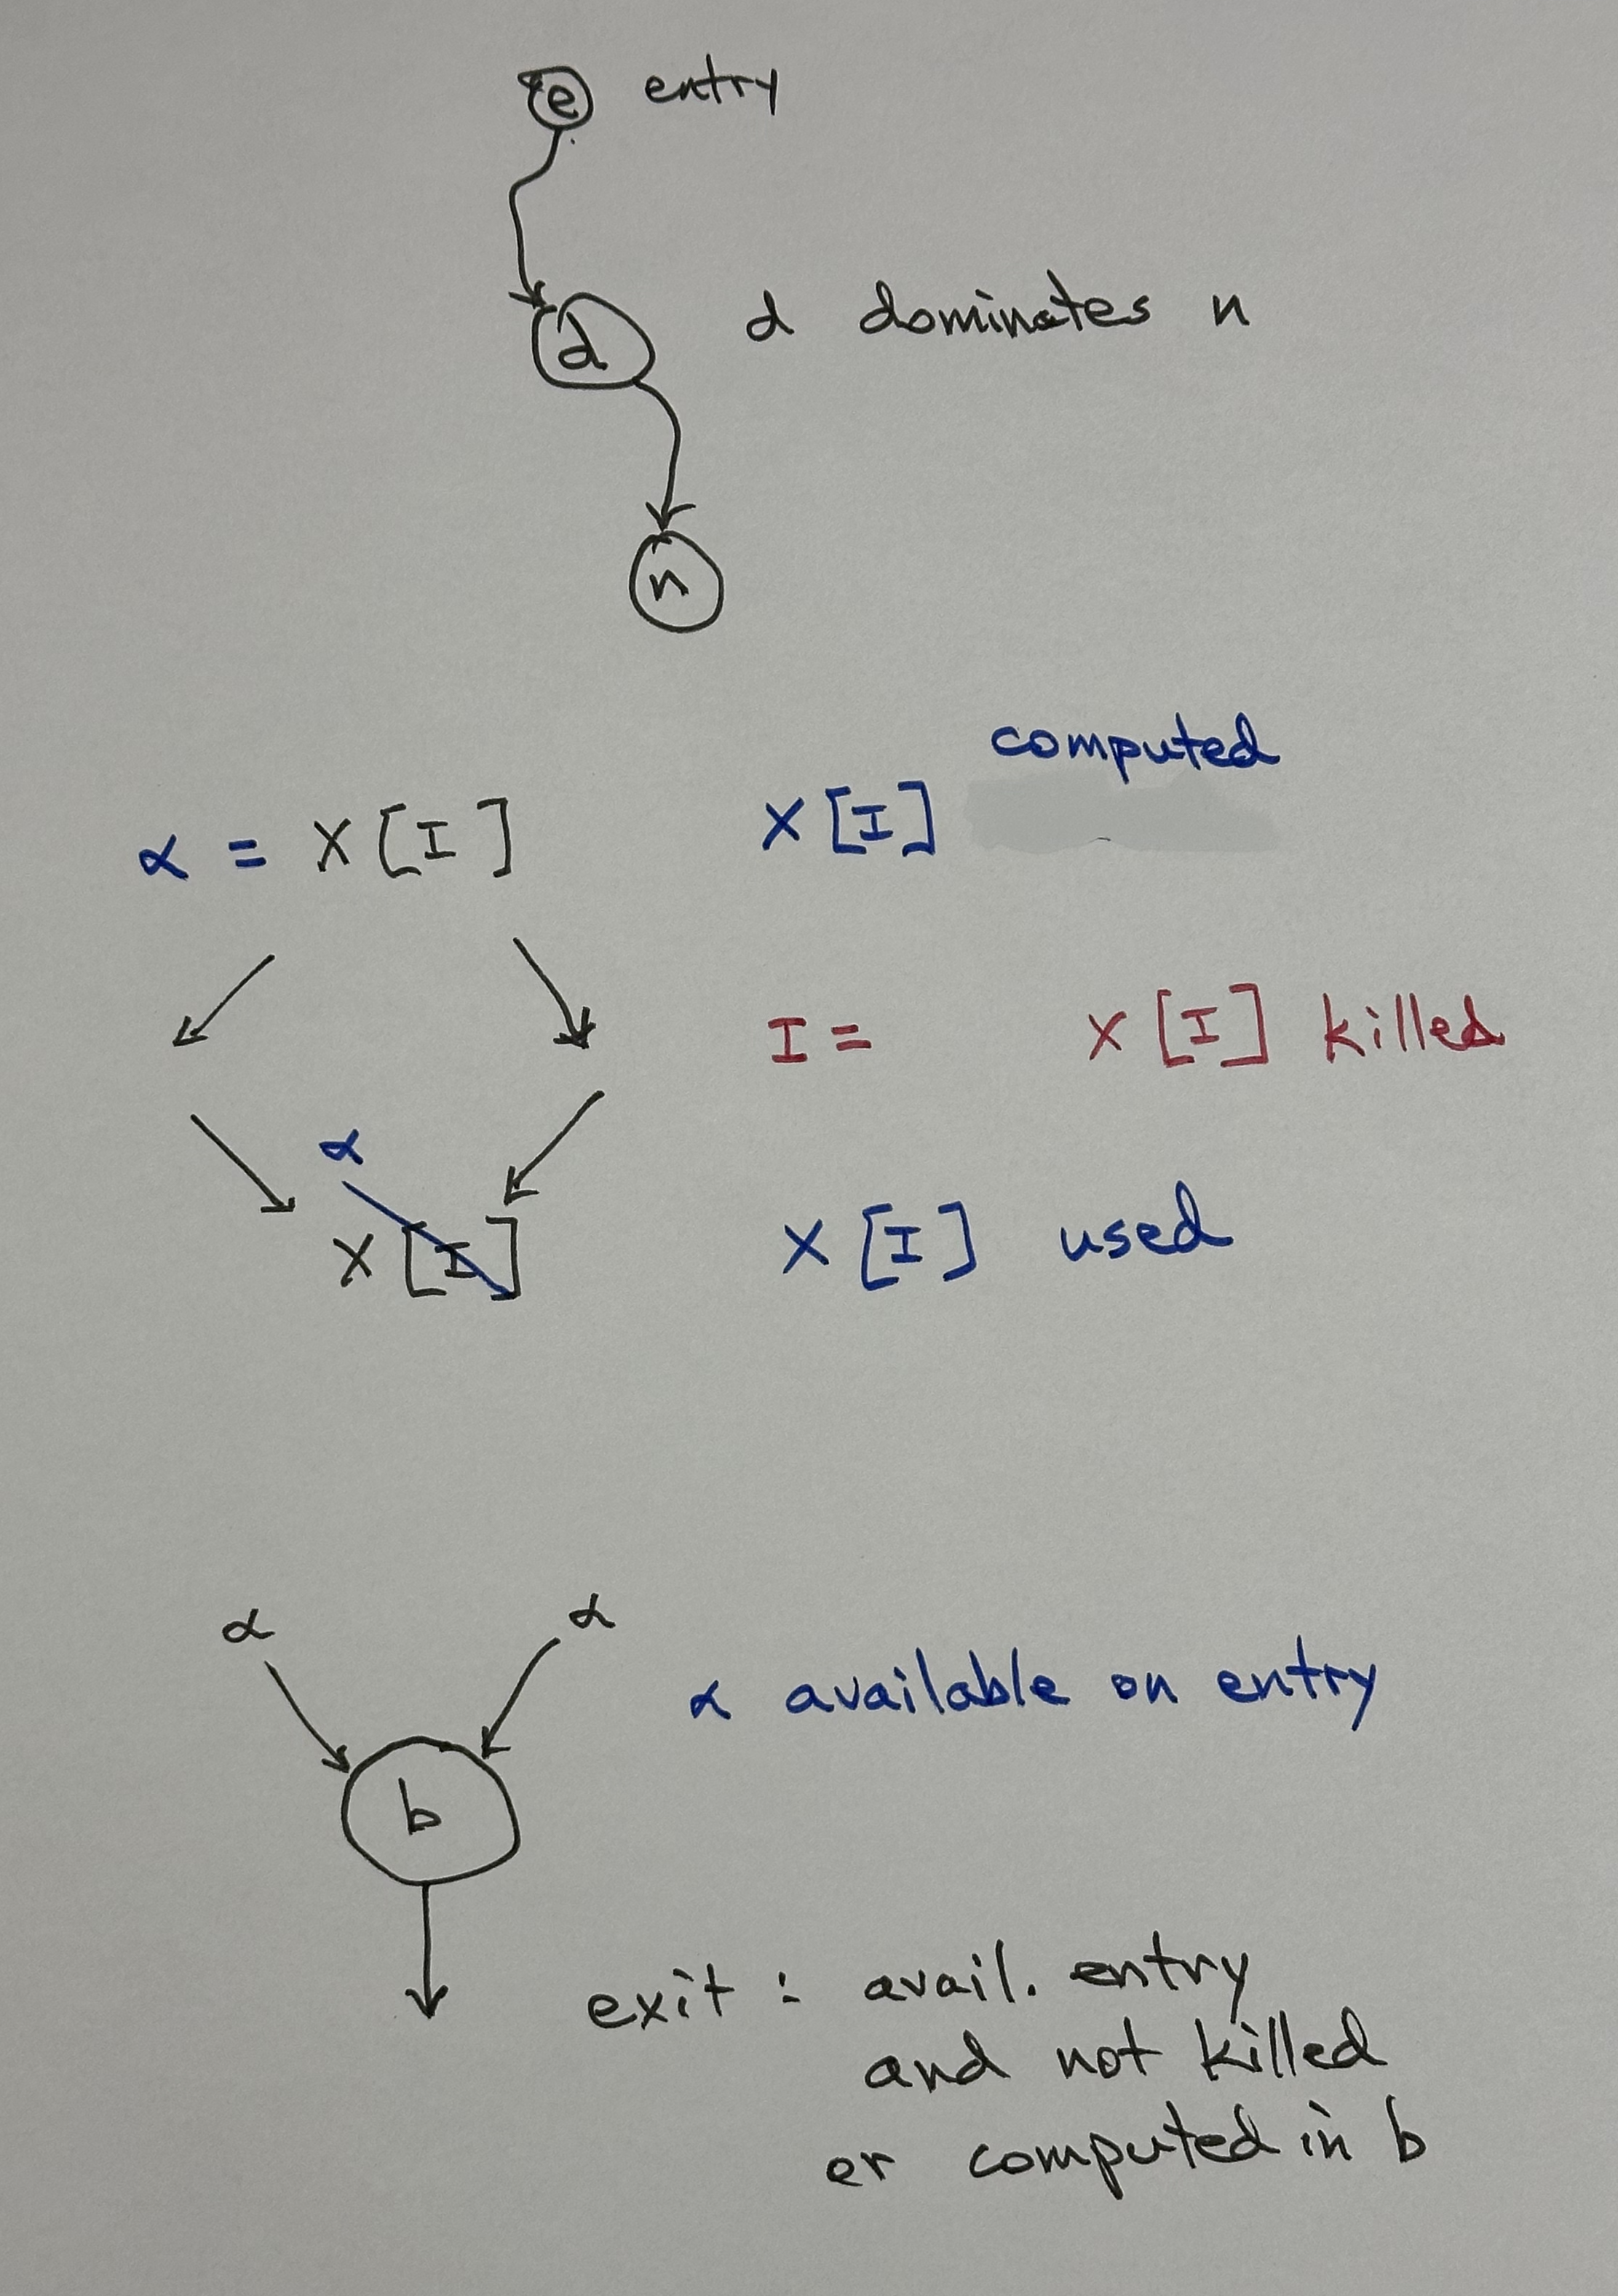 e entry
d d dominates n
n
computed
α = X[I] X[I]
I = X[I] killed
α
X[I] X[I] used
α α
α available on entry
b
exit : avail. entry
and not killed
or computed in b